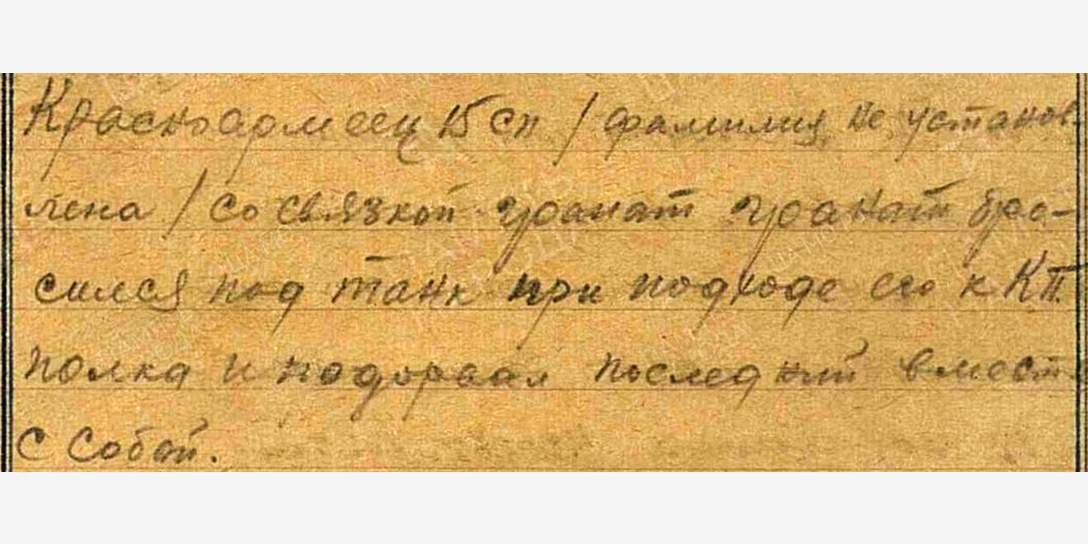 Красноармеец 15 сп / фамилия не установ
лена / со связкой гранат гранат бро-
сился под танк при подходе его к КП.
полка и подорвал последний вмест
с собой.